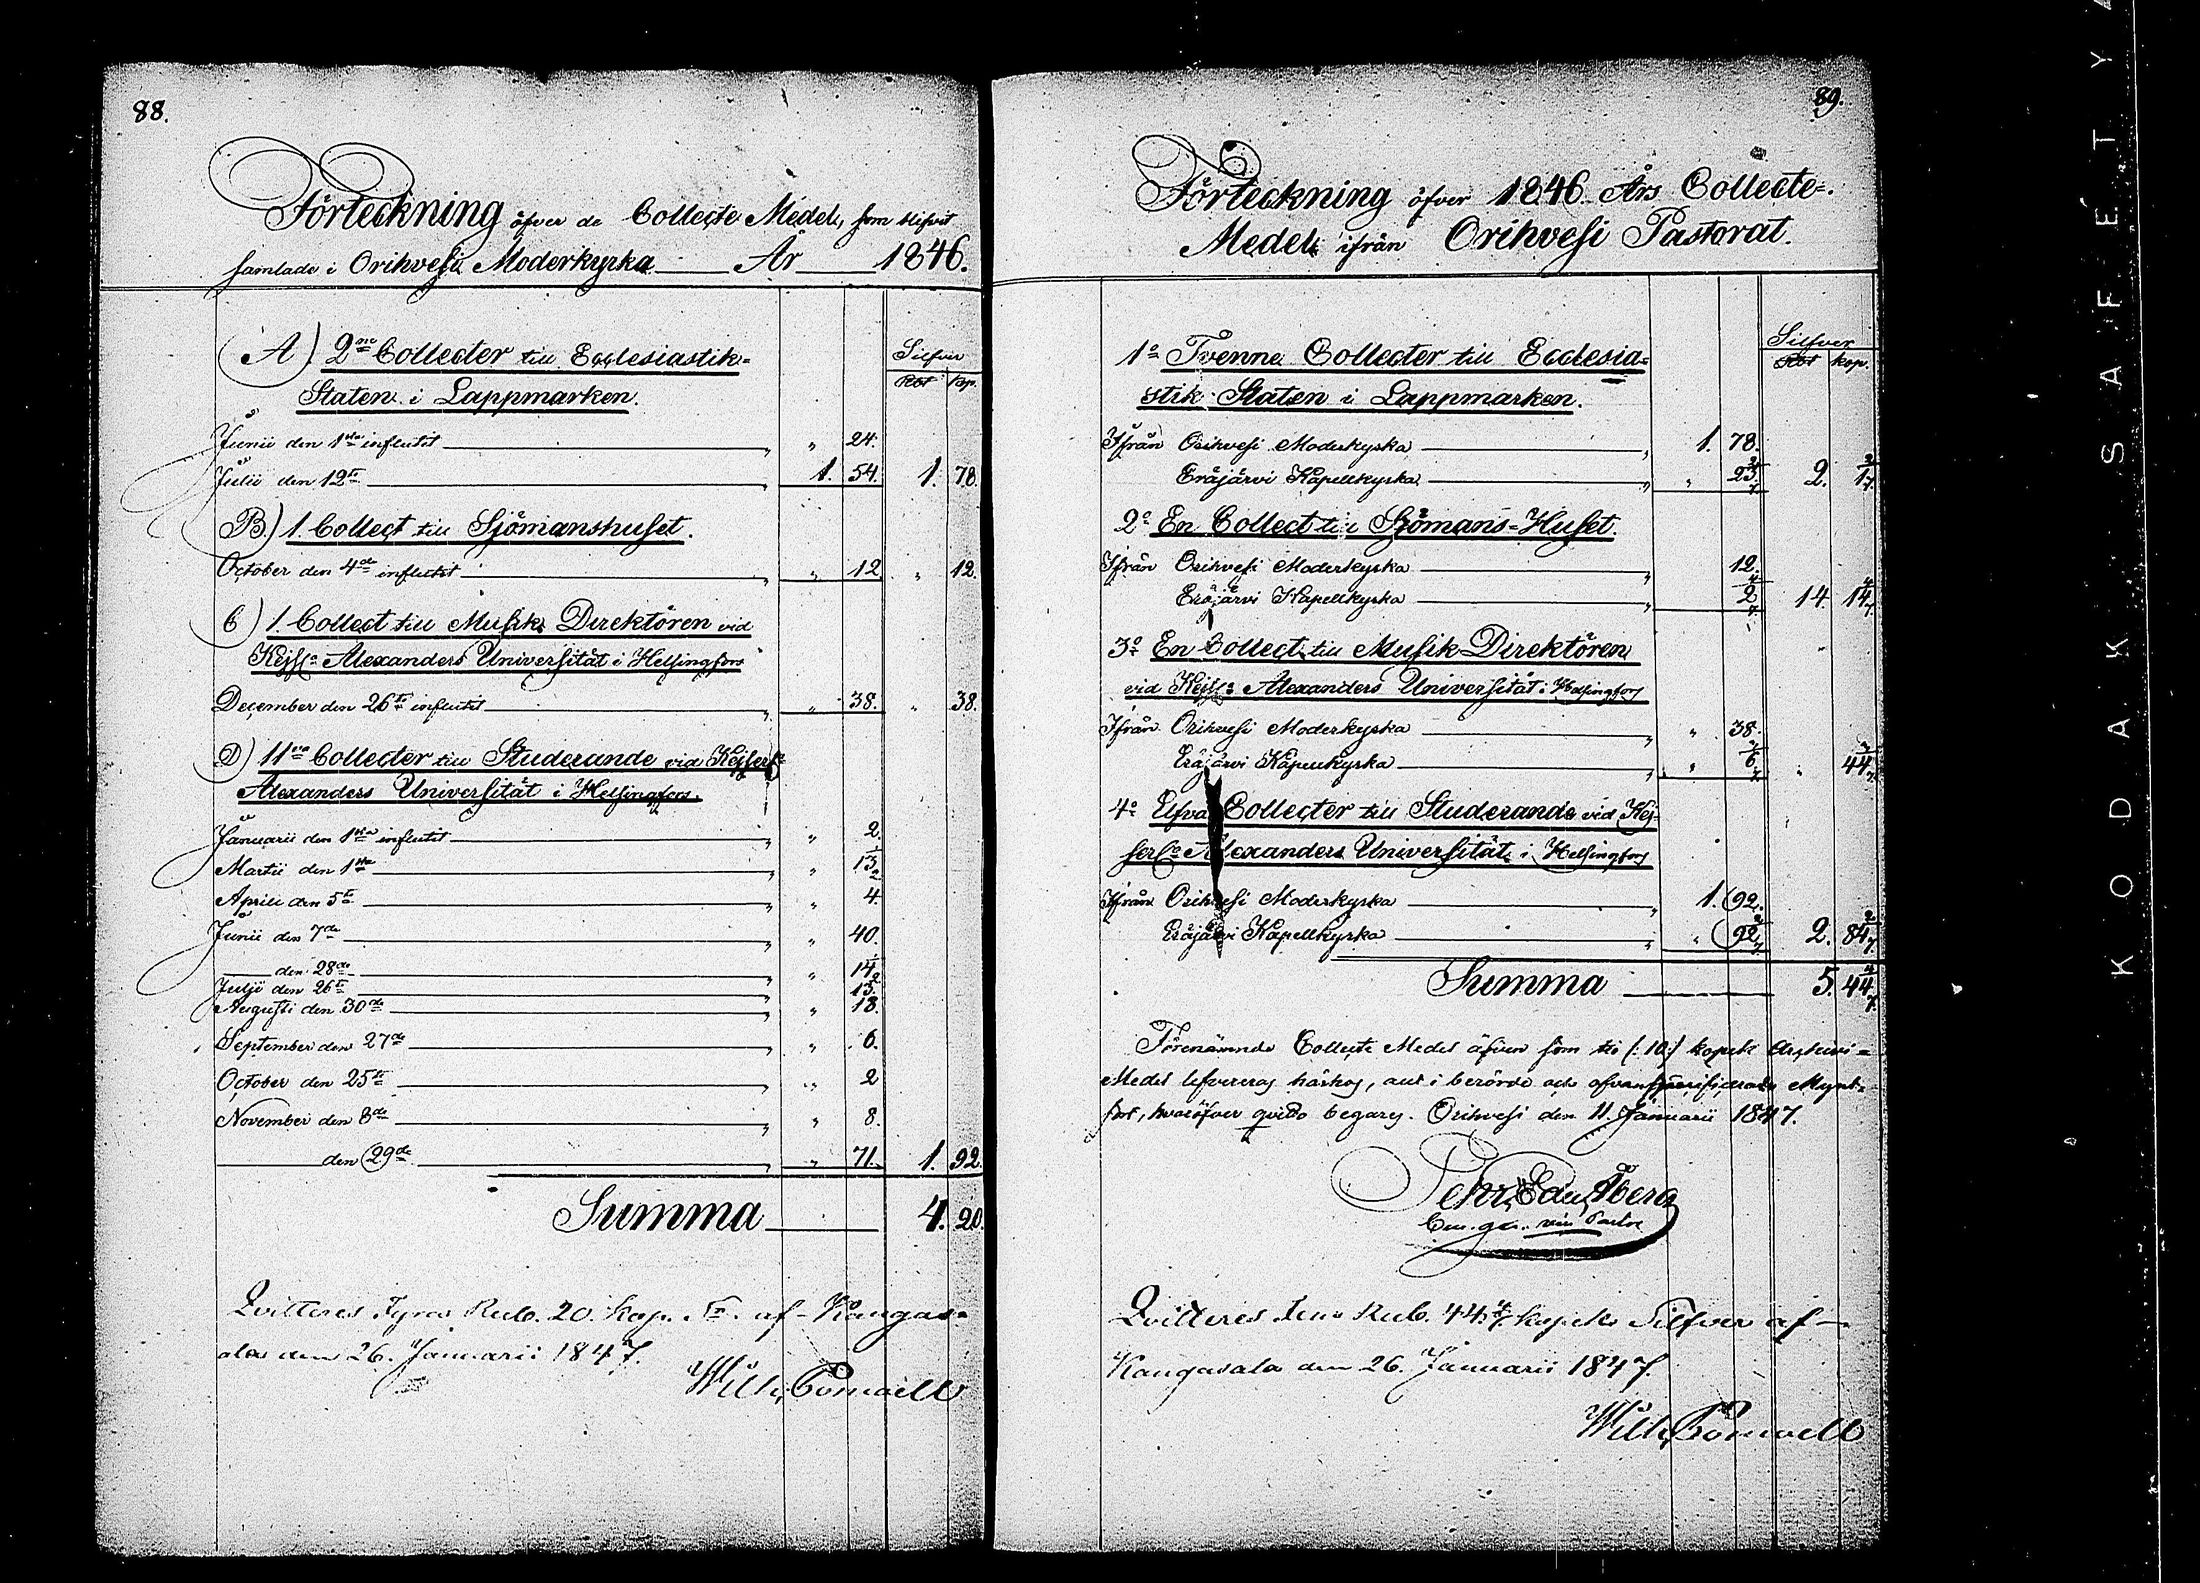 88.
Förteckning öfver de Collecte Medel, som blifvit
samlade i Orihvesi Moderkyrka År 1846.
A) 2ne Collecter till Ecclesiastik-
Silfver
Staten i Lappmarken.
Rbl kop.
Junii den 1sta influtit " 24.
Julii den 12te 1. 54. 1. 78.
B.) 1. Collect till Sjömanshuset.
October den 4de influtit " 12. " 12.
C) 1. Collect till Musik Direktören vid
Kejsl: Alexanders Universität i Helsingfors
December den 26te influtit " 38. " 38.
D) 11va Collecter till Studerande vid Kejserl:
Alexanders Universität i Helsingfors.
Januarii den 1sta influtit " 2.
Martii den 1sta " 13 1/2
Aprill den 5te " 4.
Junii den 7de " 40.
den 28de " 14 1/2
Julii den 26te " 13.
Augusti den 30de " 18.
September den 27de " 6.
October den 25te " 2
November den 8de " 8.
den 29de " 71. 1. 92.
Summa 4. 20.
Qvitteras Fyra Rub. 20. kop. Sr. af Kangas-
ala den 26. Januarii 1847.
Wilh.
89.
Förteckning öfver 1846. Års Collecte-
Medel ifrån Orihvesi Pastorat.
1o Tvenne Collecter till Ecclesia-
Silfver
stik Staten i Lappmarken.
Rbl kop.
Ifrån Orihvesi Moderkyrka 1. 78.
Eräjärvi Kapellkyrka " 23 2/7 2. 1 2/7
2o En Collect till Sjömans-Huset.
Ifrån Orihvesi Moderkyrka 12.
Eräjärvi Kapellkyrka 2 4/7 14. 14 4/7
3o En Collect till Musik Direktören
vid Kejsl: Alexanders Universität i Helsingfors
Ifrån Orihvesi Moderkyrka " 38.
Eräjärvi Kapellkyrka " 6 3/7 " 44 3/7
4o Elfva Collecter till Studerande vid Kej-
serl: Alexanders Universität i Helsingfors
Ifrån Orihvesi Moderkyrka 1. 92.
Eräjärvi Kapellkyrka " 92 2/7 2. 84 2/7
Summa 5. 44 4/7
Förenämnde Collecte Medel äfven som tio (: 10:) kopek Arkivi-
Medel lefvereras härhos, allt i berörde och ofvanspecificerade Mynt-
sort, hvaröfver qvitto begäres. Orihvesi den 11 Januarii 1847.
Pehr Edv.
Qvitteres Fem Rub. 44 4/7 kopek Silfver af
Kangasala den 26. Januarii 1847.
Wilh.
KODAK SAFETY